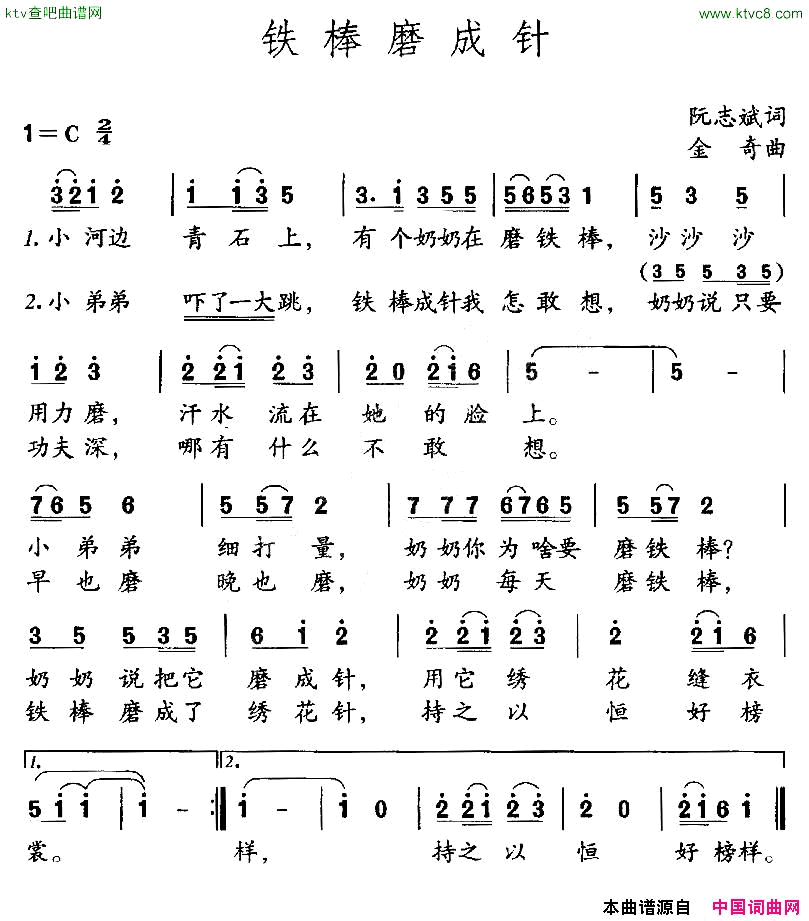 ktv查吧曲谱网
www.ktvc8.com
铁棒磨成针
1=C 2/4
阮志斌词
金 奇曲
3 2 1 2 | 1 1 3 5 | 3. 1 3 5 5 5 | 5 6 5 3 1 | 5 3 5
1.小河边 青石上， 有个奶奶在 磨铁棒， 沙沙沙
(3 5 5 3 5)
2.小弟弟 吓了一大跳， 铁棒成针我 怎敢想， 奶奶说只要
1 2 3 | 2 2 1 2 3 | 2 0 2 1 6 | 5 - | 5 - |
用力磨， 汗水 流在 她 的脸 上。
功夫深， 哪有 什么 不 敢 想。
7 6 5 6 | 5 5 7 2 | 7 7 7 6 7 6 5 | 5 5 7 2 |
小弟弟 细打量， 奶奶你为啥要 磨铁棒？
早也磨 晚也磨， 奶奶 每天 磨铁棒，
3 5 5 3 5 | 6 1 2 | 2 2 1 2 3 | 2 2 1 6 |
奶奶 说把它 磨成针， 用它 绣 花 缝衣
铁棒 磨成了 绣花针， 持之以 恒 好榜
1. 2.
5 1 1 | 1 - :| 1 - | 1 0 | 2 2 1 2 3 | 2 0 | 2 1 6 1 ‖
裳。 样， 持之以 恒 好榜样。
本曲谱源自 中国词曲网